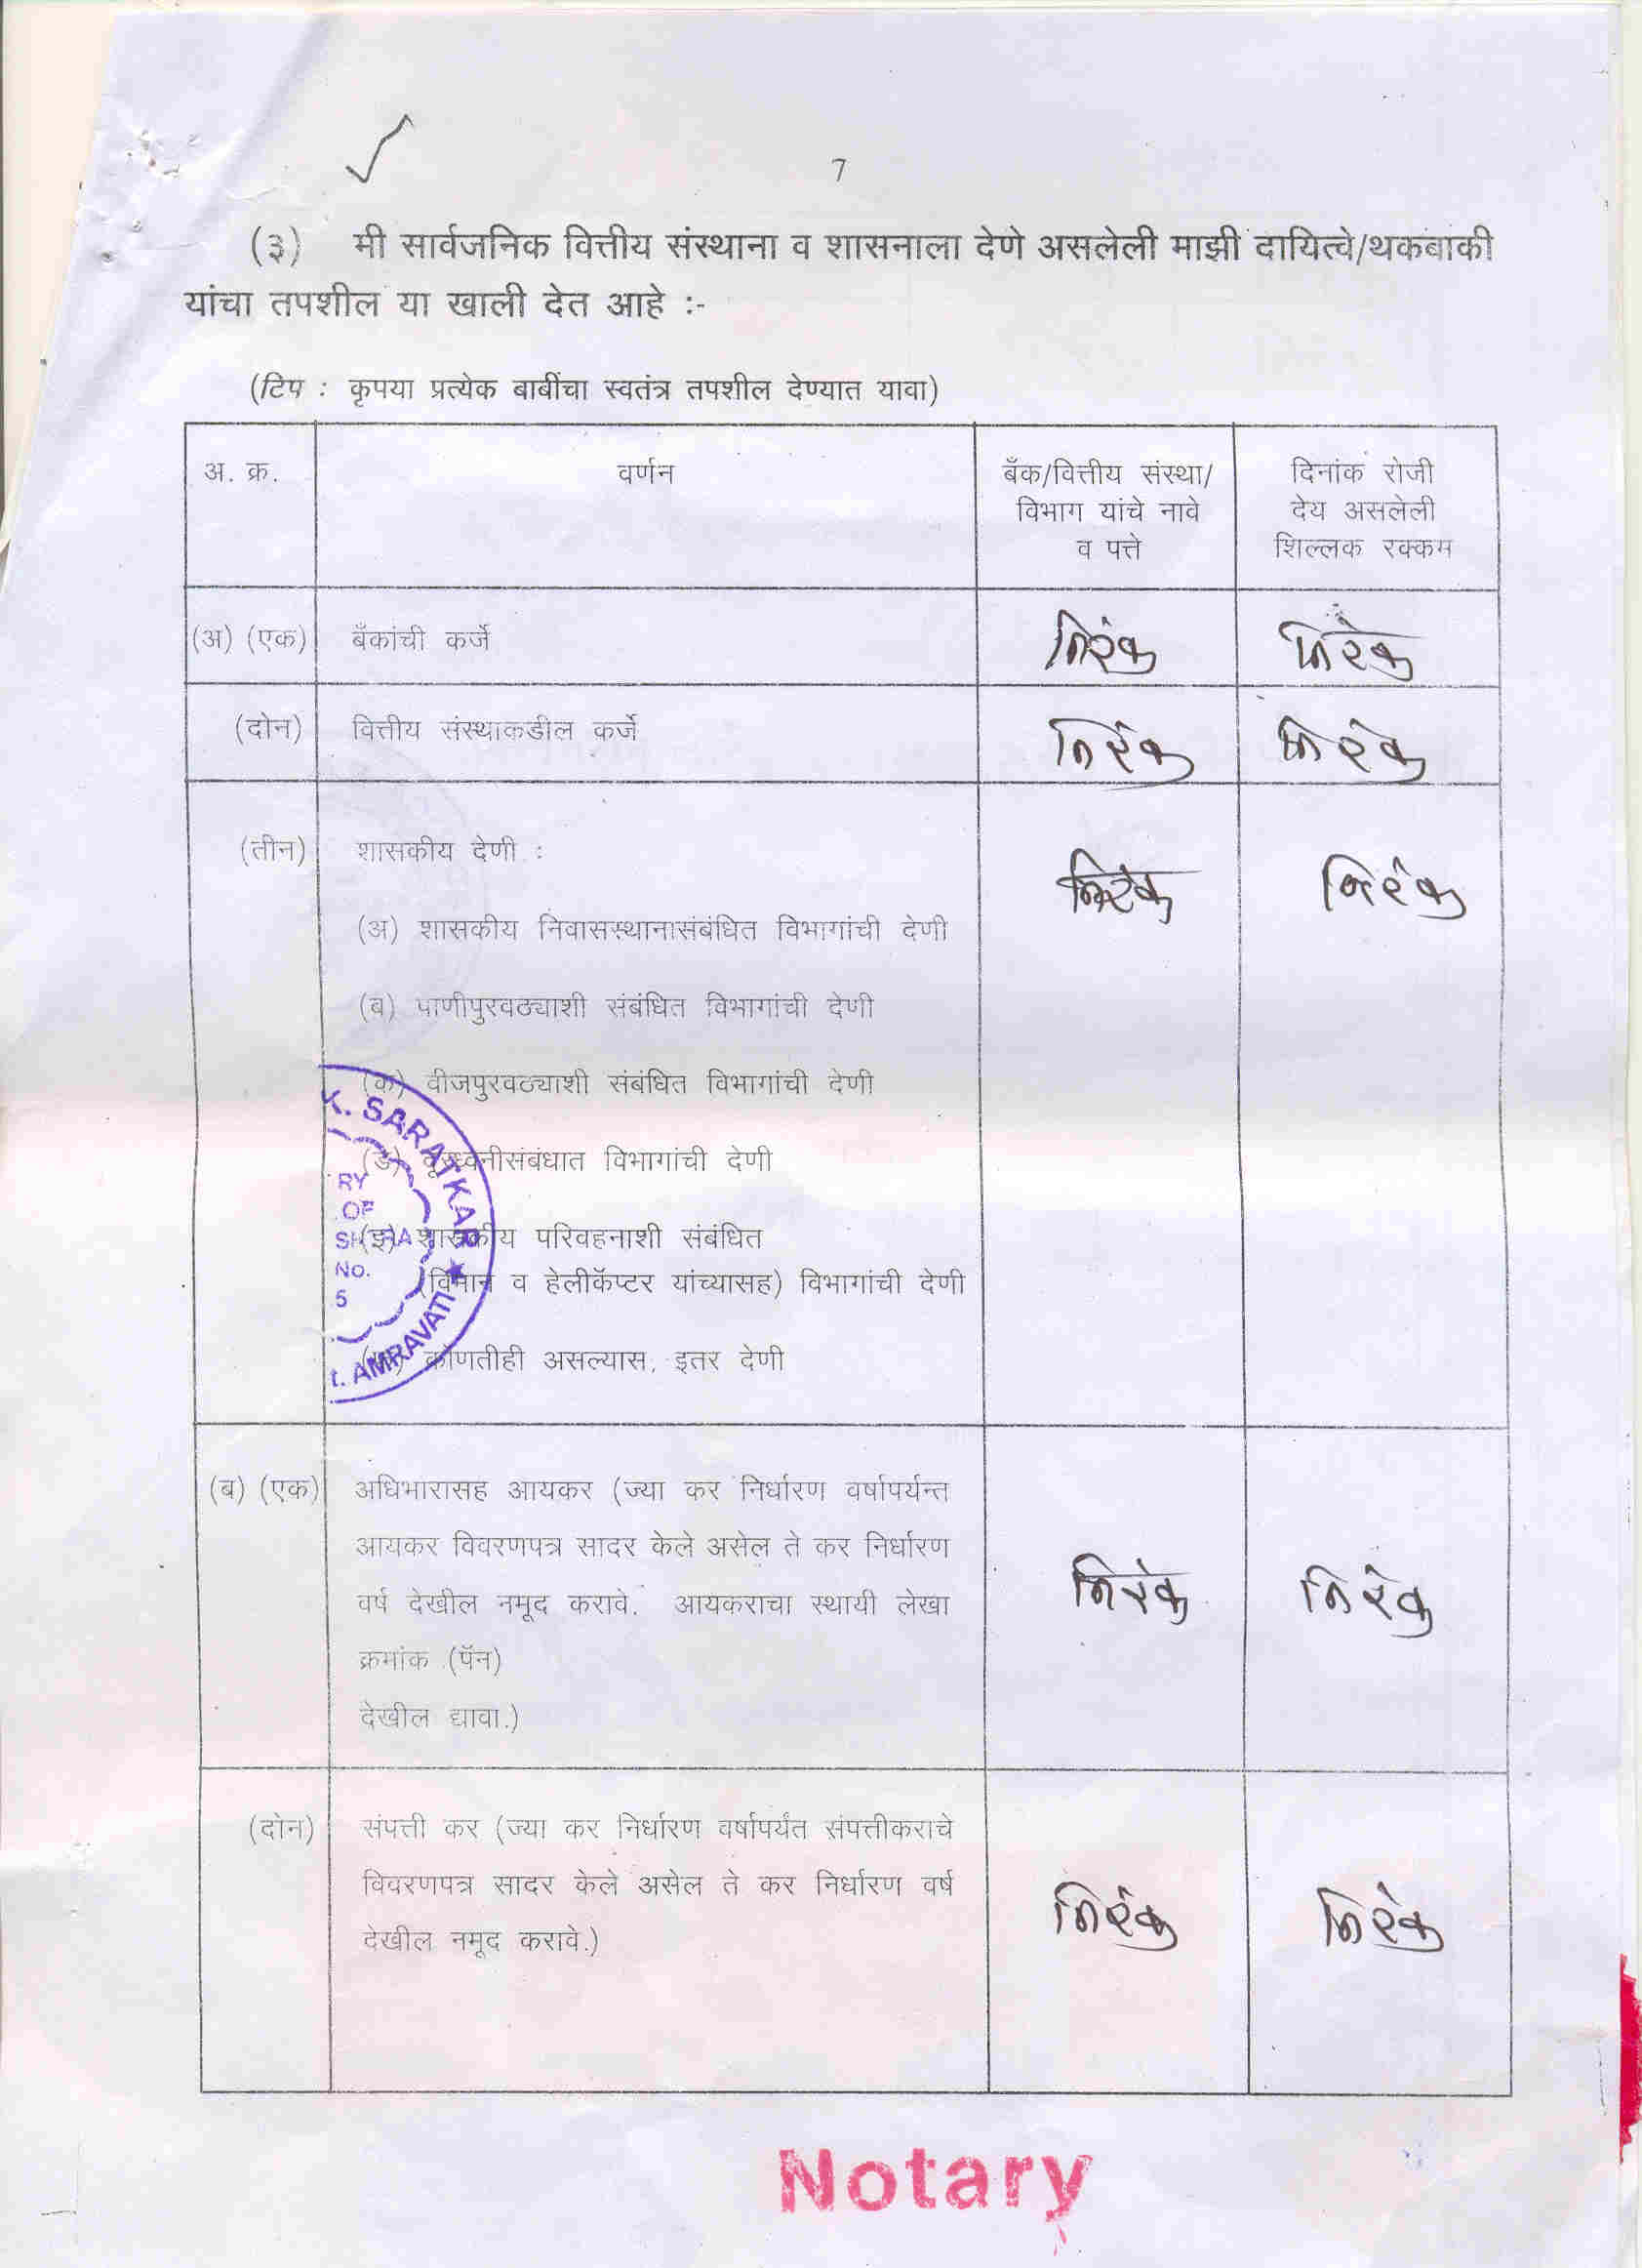 7
(३) मी सार्वजनिक वित्तीय संस्थाना व शासनाला देणे असलेली माझी दायित्वे/थकबाकी
यांचा तपशील या खाली देत आहे :-
(टिप : कृपया प्रत्येक बाबींचा स्वतंत्र तपशील देण्यात यावा)
अ. क्र.
वर्णन
बँक/वित्तीय संस्था/
विभाग यांचे नावे
व पत्ते
दिनांक रोजी
देय असलेली
शिल्लक रक्कम
(अ) (एक) बँकांची कर्जे निरंक निरंक
(दोन) वित्तीय संस्थाकडील कर्जे निरंक निरंक
(तीन) शासकीय देणी : निरंक निरंक
(अ) शासकीय निवासस्थानासंबंधित विभागांची देणी
(ब) पाणीपुरवठ्याशी संबंधित विभागांची देणी
(क) वीजपुरवठ्याशी संबंधित विभागांची देणी
(ड) दूरध्वनीसंबंधात विभागांची देणी
(इ) शासकीय परिवहनाशी संबंधित
(विमान व हेलीकॅप्टर यांच्यासह) विभागांची देणी
कोणतीही असल्यास, इतर देणी
K. SARATKAR
RY
OF
NO.
5
t. AMRAVATI ★
(ब) (एक) अधिभारासह आयकर (ज्या कर निर्धारण वर्षापर्यन्त
आयकर विवरणपत्र सादर केले असेल ते कर निर्धारण
वर्ष देखील नमूद करावे. आयकराचा स्थायी लेखा
क्रमांक (पॅन)
देखील द्यावा.)
निरंक निरंक
(दोन) संपत्ती कर (ज्या कर निर्धारण वर्षापर्यंत संपत्तीकराचे
विवरणपत्र सादर केले असेल ते कर निर्धारण वर्ष
देखील नमूद करावे.)
निरंक निरंक
Notary